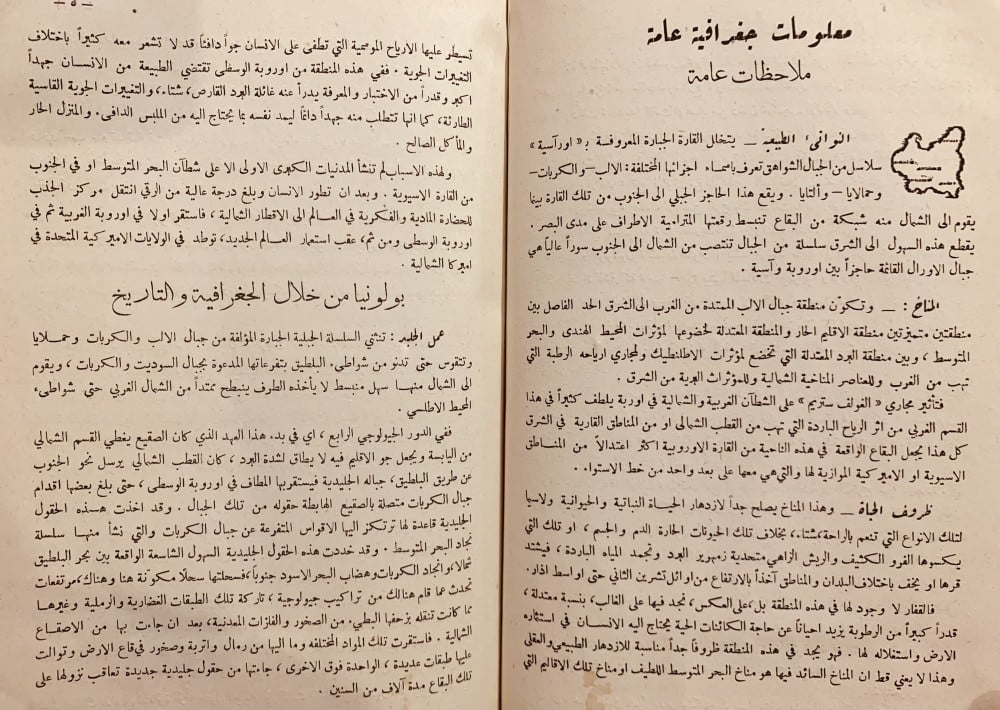 معلومات جغرافية عامة
ملاحظات عامة
النواتىء الطبيعية ــ يتخلل القارة الجبارة المعروفة بـ « اورآسية »
سلاسل من الجبال الشواهق تعرف باسماء اجزائها المختلفة : الالب – والكربات –
وحمالايا – وألتايا . ويقع هذا الحاجز الجبلي الى الجنوب من تلك القارة بينا
يقوم الى الشمال منه شبكة من البقاع تنبسط رقعتها المترامية الاطراف على مدى البصر .
يقطع هذه السهول الى الشرق سلسلة من الجبال تنتصب من الشمال الى الجنوب سوراً عالياً هي
جبال الاورال القائمة حاجزاً بين اوروبة وآسية .
المناخ : ــ وتكوّن منطقة جبال الالب الممتدة من الغرب الى الشرق الحد الفاصل بين
منطقتين متميزتين منطقة الاقليم الحار والمنطقة المعتدلة لخضوعها لمؤثرات المحيط الهندي والبحر
المتوسط ، وبين منطقة البرد المعتدلة التي تخضع لمؤثرات الاطلانطيك ولمجاري ارياحه الرطبة التي
تهب من الغرب وللعناصر المناخية الشمالية وللمؤثرات البرية من الشرق .
فتأثير مجاري « الغولف ستريم » على الشطآن الغربية والشمالية في اوربة يلطف كثيراً في هذا
القسم الغربي من اثر الرياح الباردة التي تهب من القطب الشمالى او من المناطق القارية في الشرق
كل هذا يجعل البقاع الواقعة في هذه الناحية من القارة الاوروبية اكثر اعتدالاً من المناطق
الاسيوية او الاميركية الموازية لها والتي هي معها على بعد واحد من خط الاستواء .
ظروف الحياة ــ وهذا المناخ يصلح جداً لازدهار الحياة النباتية والحيوانية ولاسيا
لتلك الانواع التي تنعم بالراحة ، شتاء ، بخلاف تلك الحيونات الحارة الدم والجسم ، او تلك التي
يكسوها الفرو الكثيف والريش الزاهي متحدية زمهرير البرد وتجمد المياه الباردة ، فيشتد
قرها او يخف باختلاف البلدان والمناطق آخذاً بالارتفاع من اوائل تشرين الثاني حتى اواسط اذار .
فالقفار لا وجود لها في هذه المنطقة بل ، على العكس ، نجد فيها على الغالب ، بنسبة معتدلة ،
قدراً كبيراً من الرطوبة يزيد احياناً عن حاجة الكائنات الحية يحتاج اليه الانسان في استثاره
الارض واستغلاله لها . فهو يجد في هذه المنطقة ظروفاً جداً مناسبة للازدهار الطبيعي والعقلي
وهذا لا يعني قط ان المناخ السائد فيها هو مناخ البحر المتوسط اللطيف او مناخ تلك الاقاليم التي
– ٥ –
تسيطر عليها الارياح الموسمية التي تطفئ على الانسان جواً دافئاً قد لا تشعر معه كثيراً باختلاف
التغييرات الجوية . ففي هذه المنطقة من اوروبة الوسطى تقتضي الطبيعة من الانسان جهداً
اكبر وقدراً من الاختبار والمعرفة يدرأ عنه غائلة البرد القارص ، شتاء ، والتغييرات الجوية القاسية
الطارئة ، كما انها تتطلب منه جهداً دائماً ليمد نفسه بما يحتاج اليه من الملبس الدافىء والمنزل الحار
والمأكل الصالح .
ولهذه الاسباب لم تنشأ المدنيات الكبرى الاولى الا على شطآن البحر المتوسط او في الجنوب
من القارة الاسيوية . وبعد ان تطور الانسان وبلغ درجة عالية من الرقي انتقل مركز الجذب
للحضارة المادية والفكرية في العالم الى الاقطار الشمالية ، فاستقر اولا في اوروبة الغربية ثم في
اوروبة الوسطى ومن ثم ، عقب استعمار العالم الجديد ، توطد في الولايات الاميركية المتحدة في
اميركا الشمالية .
بولونيا من خلال الجغرافية والتاريخ
عمل الجليد : تنثني السلسلة الجبلية الجبارة المؤلفة من جبال الالب والكربات وحملايا
وتتقوس حتى تدنو من شواطىء البلطيق بتفرعاتها المدعوة بجبال السوديت والكربات ، ويقوم
الى الشمال منها سهل منبسط لا يأخذه الطرف ينبطح ممتداً من الشمال الغربي حتى شواطىء
المحيط الاطلسي .
ففي الدور الجيولوجي الرابع ، اي في بدء هذا العهد الذي كان الصقيع يغطي القسم الشمالي
من اليابسة ويجعل جو الاقليم فيه لا يطاق لشدة البرد ، كان القطب الشمالي يرسل نحو الجنوب
عن طريق البلطيق ، جباله الجليدية فيستقر بها المطاف في اوروبة الوسطى ، حتى بلغ بعضها اقدام
جبال الكربات متصلة بالصقيع الهابطة حقوله من تلك الجبال . وقد اخذت هذه الحقول
الجليدية قاعدة لها ترتكز اليها الاقواس المتفرعة عن جبال الكربات والتي نشأ منها سلسلة
نجاد البحر المتوسط . وقد خددت هذه الحقول الجليدية السهول الشاسعة الواقعة بين بحر البلطيق
شمالا ، وانجاد الكربات وهضاب البحر الاسود جنوباً ، فسحلتها سحلًا مكونة هنا وهناك ، مرتفعات
تحدث عما قام هنالك من تراكيب جيولوجية ، تاركة تلك الطبقات الغضارية والرملية وغيرها
مما كانت تنقله بزحفها البطيء من الصخور والفلزات المعدنية ، بعد ان جاءت بها من الاصقاع
الشمالية . فاستقرت تلك المواد المختلفه وما اليها من رمال واتربة وصخور في قاع الارض وتوالت
عليها طبقات عديدة ، الواحدة فوق الاخرى ، جاءتها من حقول جليدية جديدة تعاقب نزولها على
تلك البقاع مدة آلاف من السنين .